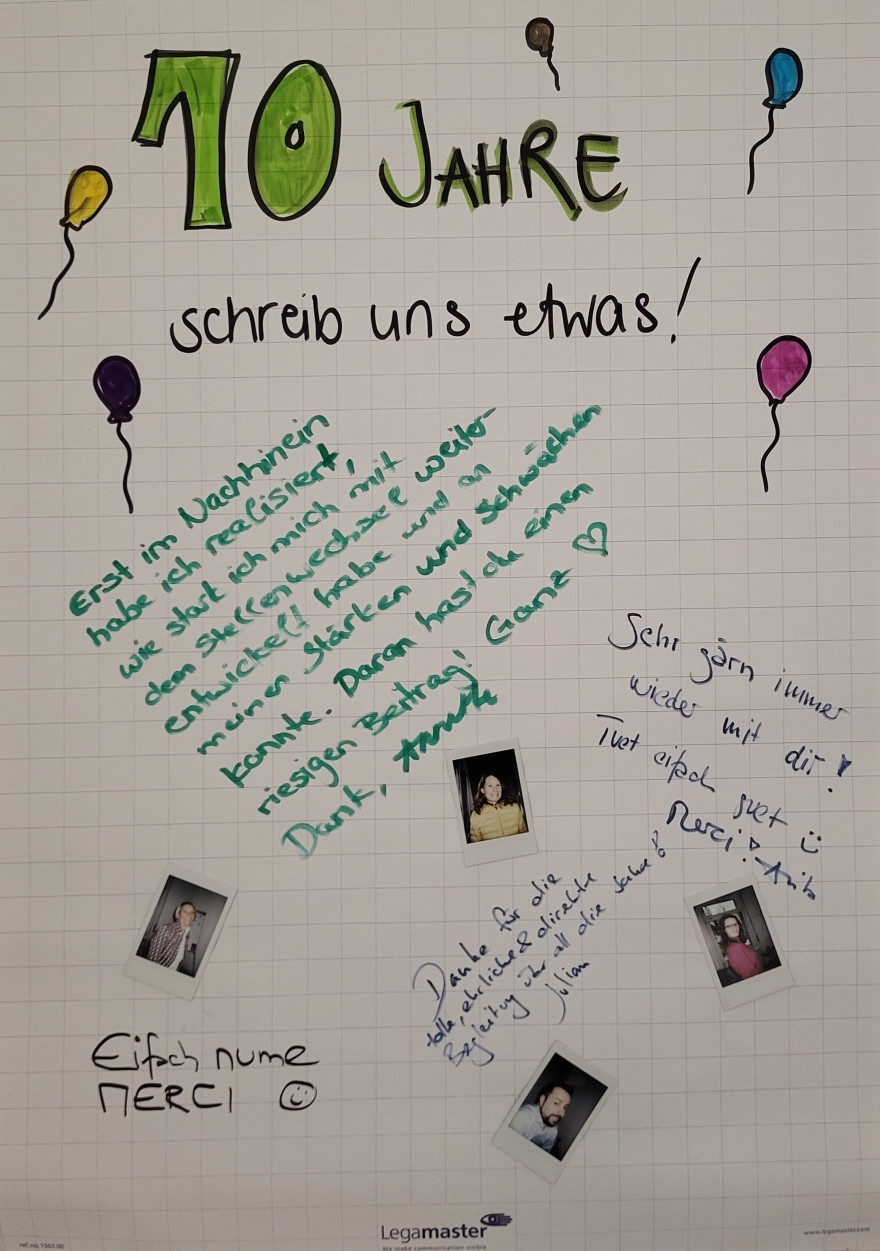 10 JAHRE
schreib uns etwas!
Erst im Nachhinein
habe ich realisiert,
wie stark ich mich mit
dem Stellenwechsel weiter-
entwickelt habe und an
meinen Stärken und Schwächen
konnte. Daran hast du einen
riesigen Beitrag! Ganz ♡
Dank,
Sehr gärn immer
wieder mit dir!
Tuet eifach guet ☺
Merci!
Danke für die
tolle, ehrliche & direkte
Begleitung über all die Jahre!
Julian
Eifach nume
MERCI ☺
Legamaster
We make communication visible
ref.no. 1563.00
www.legamaster.com